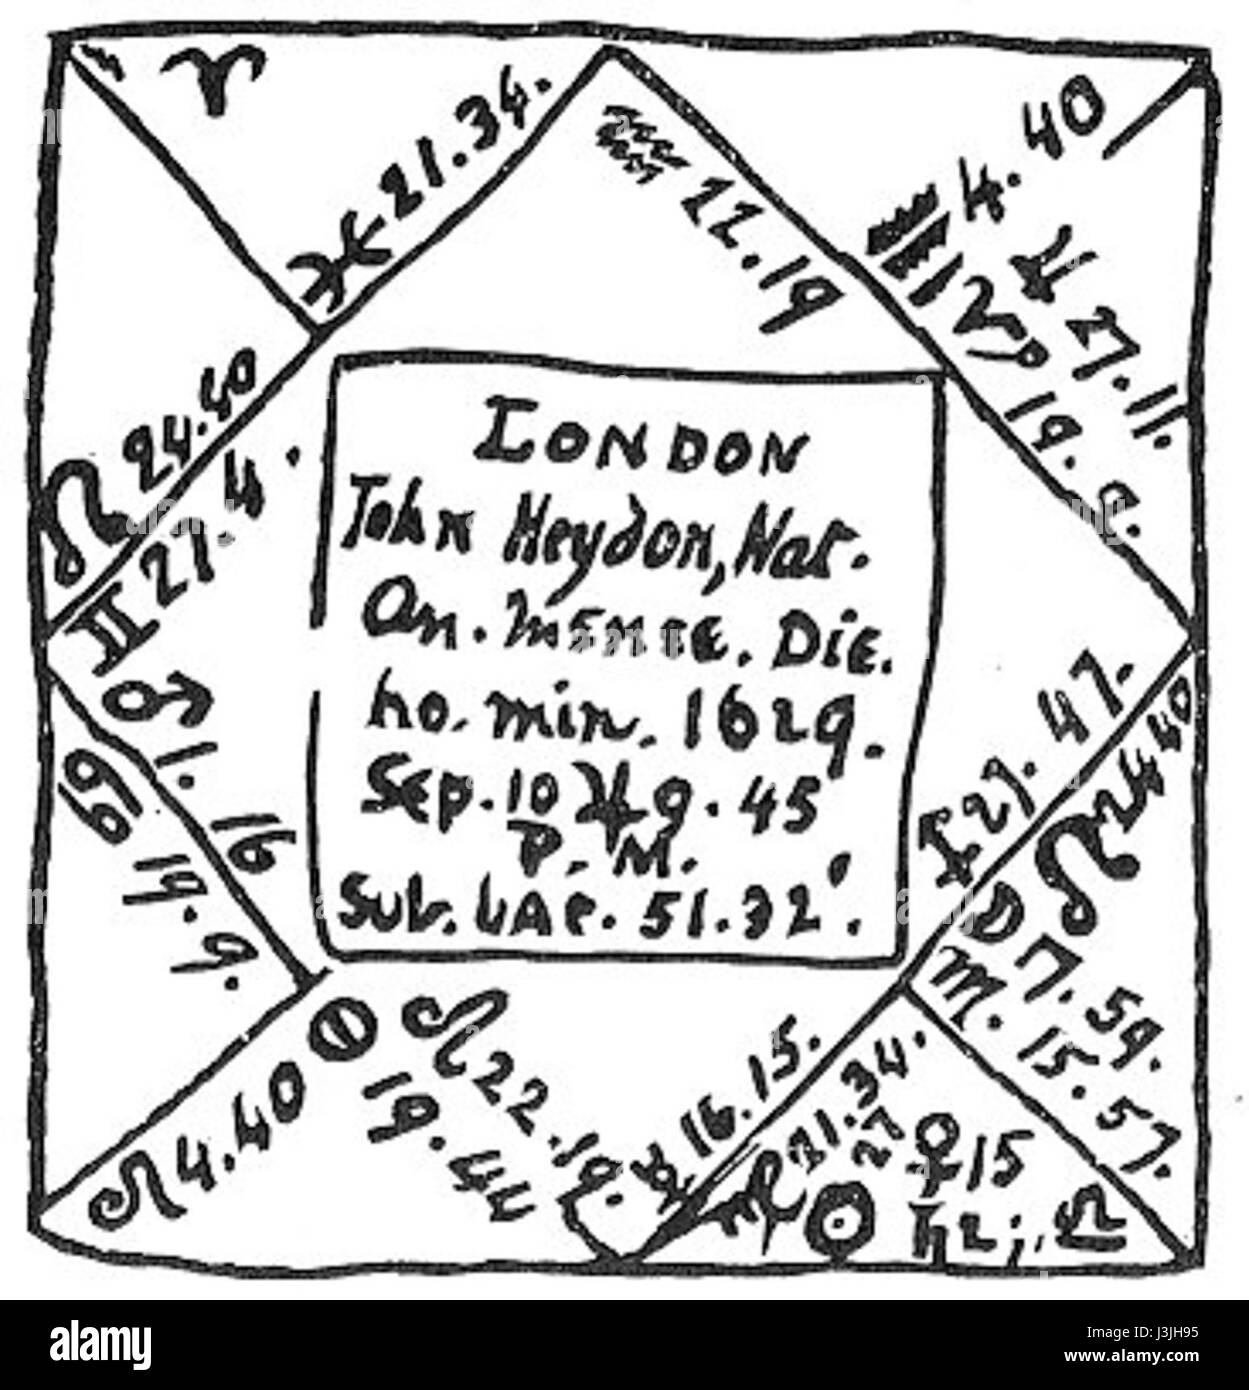 ♈
♓ 21.34.
♒ 22.19
4.40
♑ 19.9.
27.11.
♌ 24.40
♊ 27.4.
♂ 1.16
♋ 19.9.
LONDON
John Heydon, Nat.
An. MENSE. DIE.
ho. min. 1629.
Sep. 10 ♃ 9.45
P. M.
Sub. LAC. 51.32'.
27.47.
4.40
☽ 7.59.
♏. 15.57.
♌ 4.40
19.44
♌ 22.19.
16.15.
21.34.
27
♀ 15
☉
♄ 2 ♎
alamy
Image ID: J3JH95
www.alamy.com